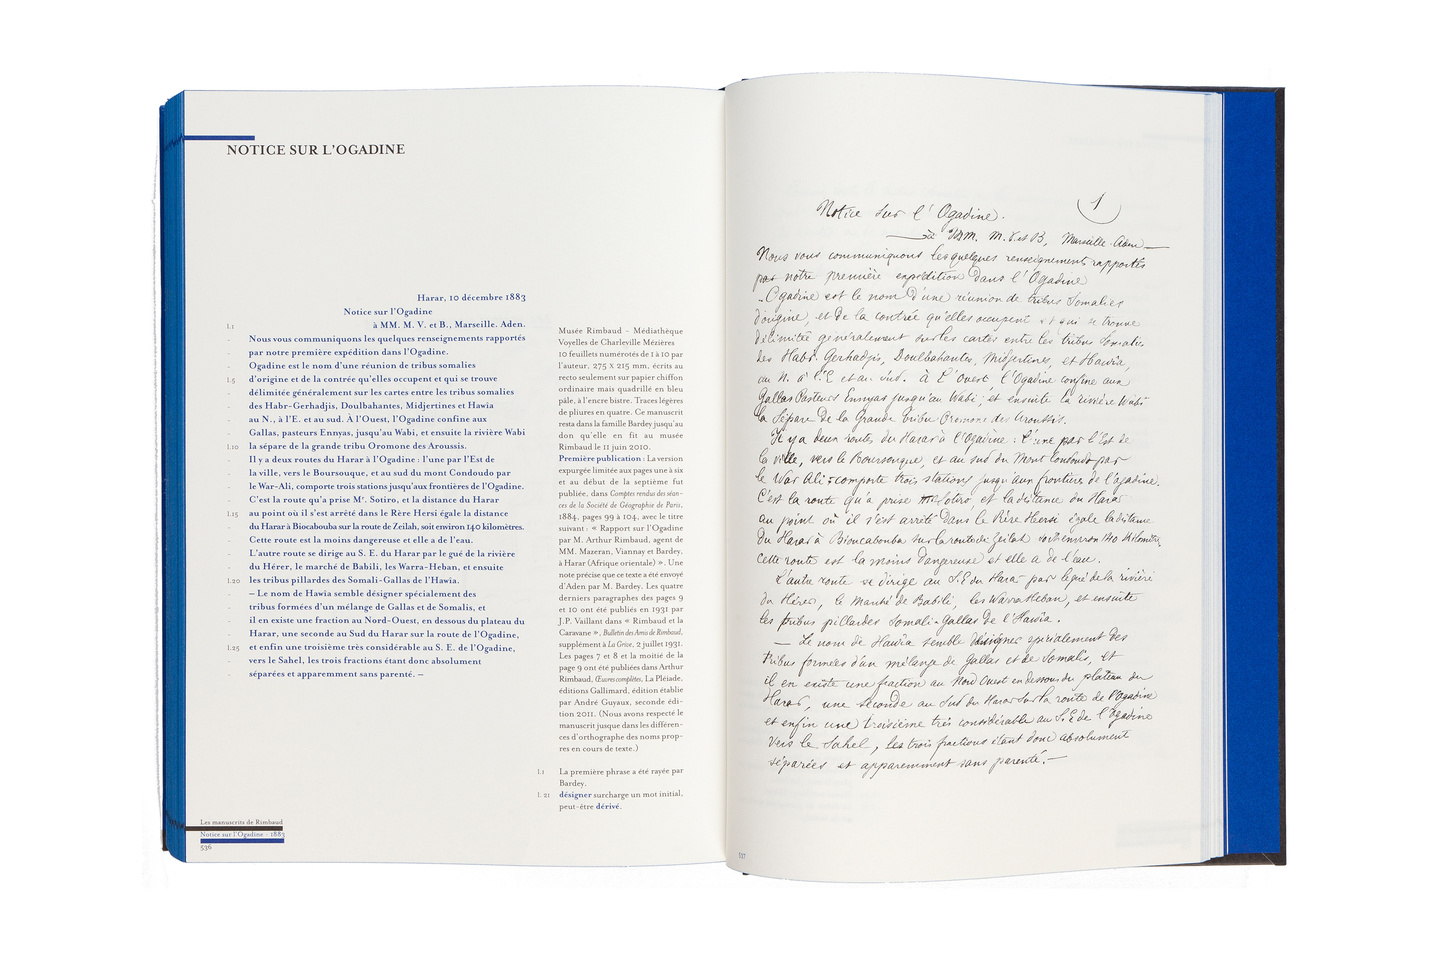 NOTICE SUR L'OGADINE
Harar, 10 décembre 1883
Notice sur l'Ogadine
l.1 à MM. M. V. et B., Marseille. Aden.
Nous vous communiquons les quelques renseignements rapportés
par notre première expédition dans l'Ogadine.
Ogadine est le nom d'une réunion de tribus somalies
l.5 d'origine et de la contrée qu'elles occupent et qui se trouve
délimitée généralement sur les cartes entre les tribus somalies
des Habr-Gerhadjis, Doulbahantes, Midjertines et Hawïa
au N., à l'E. et au sud. À l'Ouest, l'Ogadine confine aux
Gallas, pasteurs Ennyas, jusqu'au Wabi, et ensuite la rivière Wabi
l.10 la sépare de la grande tribu Oromone des Aroussis.
Il y a deux routes du Harar à l'Ogadine : l'une par l'Est de
la ville, vers le Boursouque, et au sud du mont Condoudo par
le War-Ali, comporte trois stations jusqu'aux frontières de l'Ogadine.
C'est la route qu'a prise Mr. Sotiro, et la distance du Harar
l.15 au point où il s'est arrêté dans le Rère Hersi égale la distance
du Harar à Biocabouba sur la route de Zeilah, soit environ 140 kilomètres.
Cette route est la moins dangereuse et elle a de l'eau.
L'autre route se dirige au S. E. du Harar par le gué de la rivière
du Hérer, le marché de Babili, les Warra-Heban, et ensuite
l.20 les tribus pillardes des Somali-Gallas de l'Hawïa.
– Le nom de Hawïa semble désigner spécialement des
tribus formées d'un mélange de Gallas et de Somalis, et
il en existe une fraction au Nord-Ouest, en dessous du plateau du
Harar, une seconde au Sud du Harar sur la route de l'Ogadine,
l.25 et enfin une troisième très considérable au S. E. de l'Ogadine,
vers le Sahel, les trois fractions étant donc absolument
séparées et apparemment sans parenté. –
Musée Rimbaud – Médiathèque
Voyelles de Charleville Mézières
10 feuillets numérotés de 1 à 10 par
l'auteur, 275 X 215 mm, écrits au
recto seulement sur papier chiffon
ordinaire mais quadrillé en bleu
pâle, à l'encre bistre. Traces légères
de pliures en quatre. Ce manuscrit
resta dans la famille Bardey jusqu'au
don qu'elle en fit au musée
Rimbaud le 11 juin 2010.
Première publication : La version
expurgée limitée aux pages une à six
et au début de la septième fut
publiée, dans Comptes rendus des séan-
ces de la Société de Géographie de Paris,
1884, pages 99 à 104, avec le titre
suivant : « Rapport sur l'Ogadine
par M. Arthur Rimbaud, agent de
MM. Mazeran, Viannay et Bardey,
à Harar (Afrique orientale) ». Une
note précise que ce texte a été envoyé
d'Aden par M. Bardey. Les quatre
derniers paragraphes des pages 9
et 10 ont été publiés en 1931 par
J.P. Vaillant dans « Rimbaud et la
Caravane », Bulletin des Amis de Rimbaud,
supplément à La Grive, 2 juillet 1931.
Les pages 7 et 8 et la moitié de la
page 9 ont été publiées dans Arthur
Rimbaud, Œuvres complètes, La Pléiade,
éditions Gallimard, édition établie
par André Guyaux, seconde édi-
tion 2011. (Nous avons respecté le
manuscrit jusque dans les différen-
ces d'orthographe des noms prop-
res en cours de texte.)
l.1 La première phrase a été rayée par
Bardey.
l. 21 désigner surcharge un mot initial,
peut-être dérivé.
Les manuscrits de Rimbaud
Notice sur l'Ogadine - 1883
536
1
Notice sur l'Ogadine.
à MM. M. V. et B, Marseille-Aden
Nous vous communiquons les quelques renseignements rapportés
par notre première expédition dans l'Ogadine
Ogadine est le nom d'une réunion de tribus Somalies
d'origine, et de la contrée qu'elles occupent et qui se trouve
délimitée généralement sur les cartes entre les tribus Somalies
des Habr-Gerhadjis, Doulbahantes, Midjertines, et Hawïa,
au N. à l'E et au Sud. À l'Ouest, l'Ogadine confine aux
Gallas Pasteurs Ennyas jusqu'au Wabi ; et ensuite la rivière Wabi
la Sépare de la Grande tribu Oromone des Aroussis.
Il y a deux routes du Harar à l'Ogadine : l'une par l'Est de
la ville, vers le Boursouque, et au sud du Mont Condoudo par
le War Ali comporte trois stations jusqu'aux frontières de l'Ogadine.
C'est la route qu'a prise Mr Sotiro, et la distance du Harar
au point où il s'est arrêté dans le Rère Hersi égale la distance
du Harar à Bioucabouba sur la route de Zeilah soit environ 140 kilomètres,
Cette route est la moins dangereuse et elle a de l'eau.
L'autre route se dirige au S.E du Harar par le gué de la rivière
du Hérer, le Marché de Babili, les Warra Heban, et ensuite
les tribus pillardes Somali-Gallas de l'Hawïa.
— Le nom de Hawïa semble désigner spécialement des
tribus formées d'un mélange de Gallas et de Somalis, et
il en existe une fraction au Nord Ouest en dessous du plateau du
Harar, une seconde au Sud du Harar sur la route de l'Ogadine
et enfin une troisième très considérable au S.E de l'Ogadine
vers le Sahel, les trois fractions étant donc absolument
séparées et apparemment sans parenté. —
537